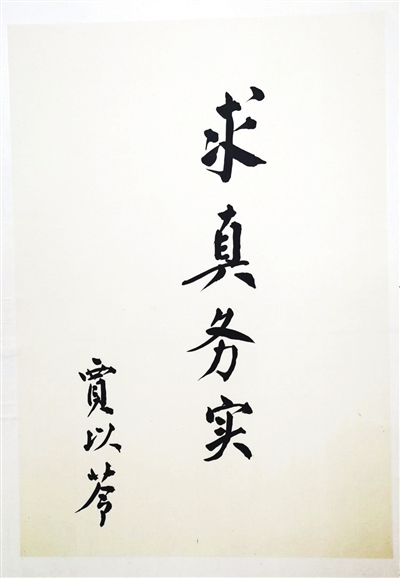 求真务实
賈以